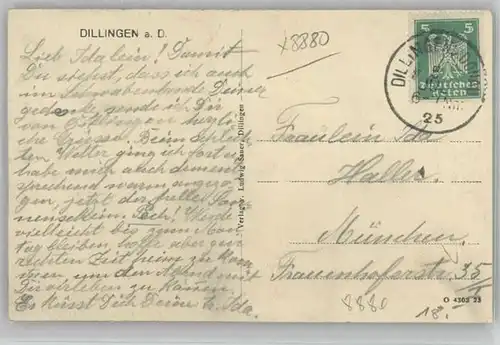 DILLINGEN a. D.
Lieb Idalein! Damit
Du siehst, dass ich auch
im Schwabenlande Deiner
gedenke, sende ich Dir
von herzliche
Grüsse. Beim schlech-
ten Wetter ging ich fort u.
habe mich auch dement-
sprechend warm angezo-
gen, jetzt der helle Son-
nenschein. Pech! Werde
vielleicht bis zum Mon-
tag bleiben, hoffe aber zur
rechten Zeit heim zu kom-
men um den Abend mit
Dir verleben zu können.
Es küsst Dich Deine Ida.
Verlag v. Ludwig Sauer, Dillingen
x8880
5 5
Deutsches
DILLINGEN
25
Fräulein Ida
Haller
München
Frauenhoferstr. 35/
8880
O 4303 23
18.